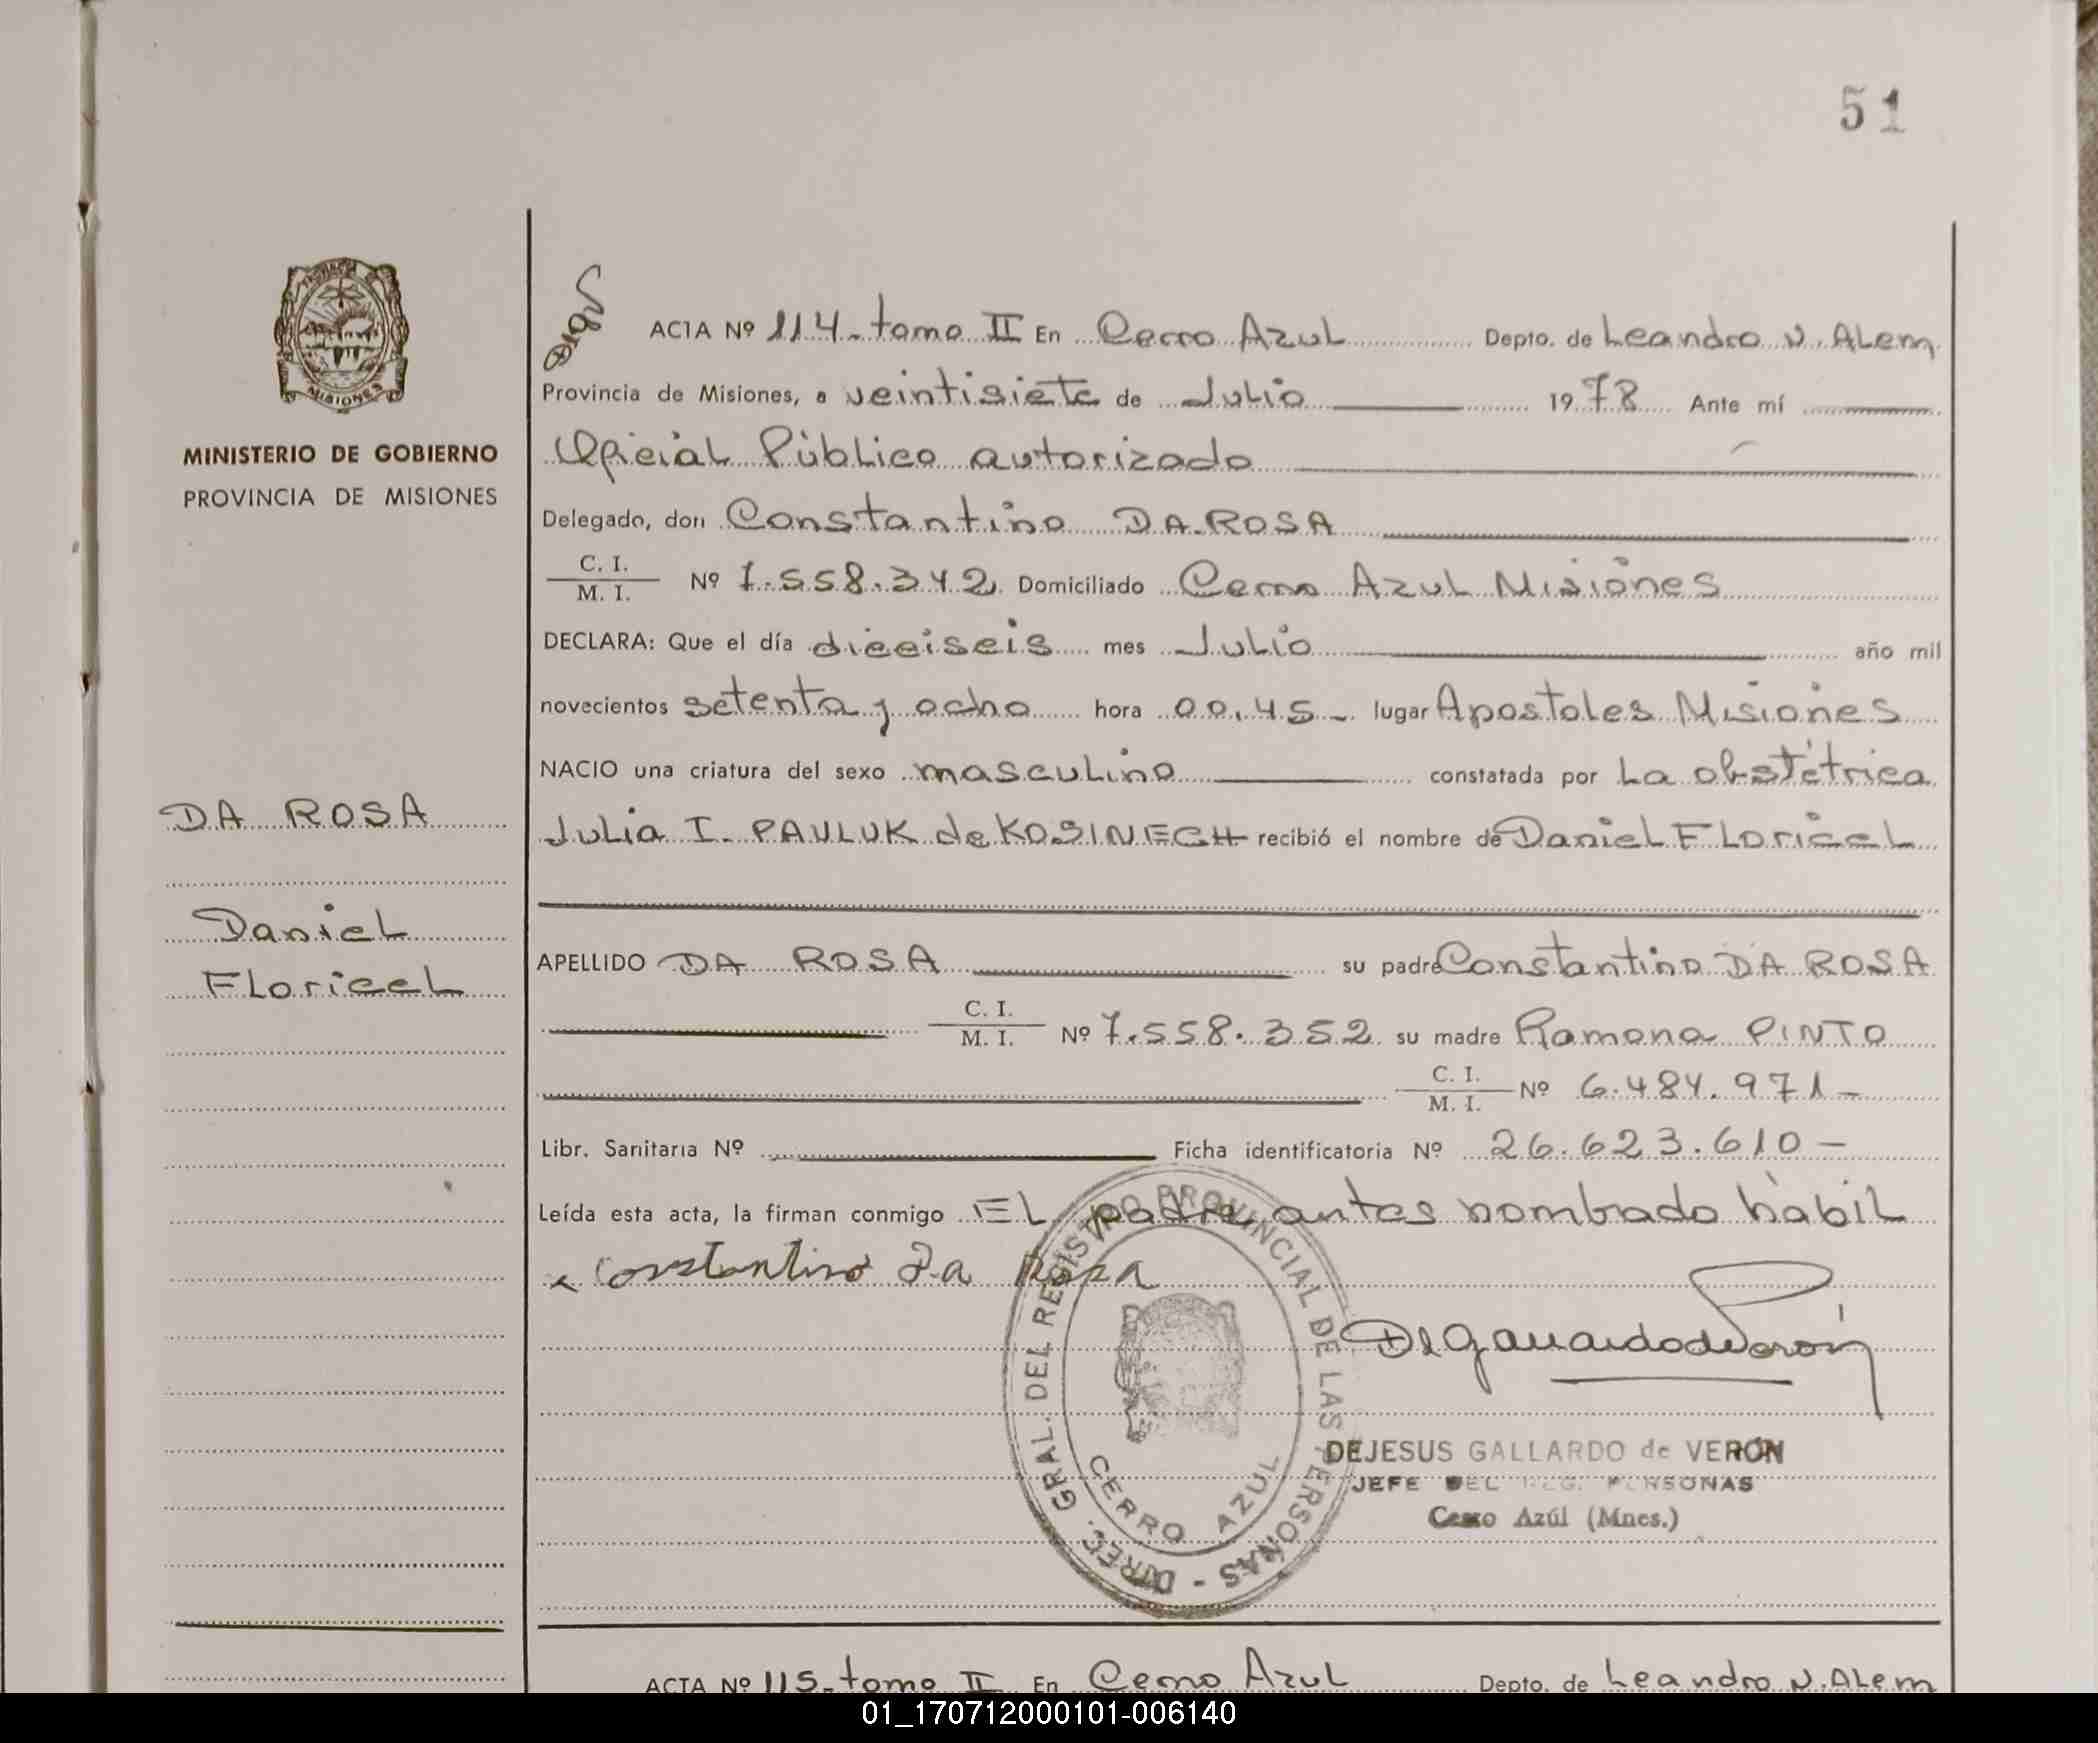 51
MISIONES
MINISTERIO DE GOBIERNO
PROVINCIA DE MISIONES
DA ROSA
Daniel
Floricel
ACTA Nº 114- tomo II En Cerro Azul Depto. de Leandro N. Alem
Provincia de Misiones, a veintisiete de Julio 1978 Ante mí
Oficial Público autorizado
Delegado, don Constantino DA ROSA
C. I.
M. I. Nº 7.558.342 Domiciliado Cerro Azul Misiones
DECLARA: Que el día dieciseis mes Julio año mil
novecientos setenta y ocho hora 00,45 - lugar Apostoles Misiones
NACIO una criatura del sexo masculino constatada por La obstétrica
Julia I. PAULUK de KOSINECH recibió el nombre de Daniel Floricel
APELLIDO DA ROSA su padre Constantino DA ROSA
C. I.
M. I. Nº 7.558.352 su madre Ramona PINTO
C. I.
M. I. Nº 6.484.971-
Libr. Sanitaria Nº Ficha identificatoria Nº 26.623.610-
Leída esta acta, la firman conmigo EL padre antes nombrado hábil
Constantino Da Rosa
DGallardodeVerón
DIREC. GRAL. DEL REGISTRO PROVINCIAL DE LAS PERSONAS -
CERRO AZUL
DEJESUS GALLARDO de VERÓN
JEFE DEL REG. PERSONAS
Cerro Azúl (Mnes.)
ACTA Nº 115- tomo II En Cerro Azul Depto. de Leandro N. Alem
01_170712000101-006140